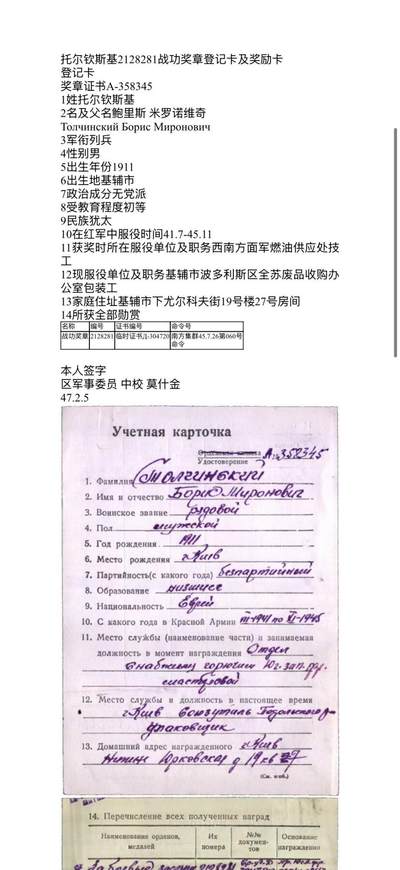 托尔钦斯基2128281战功奖章登记卡及奖励卡
登记卡
奖章证书A-358345
1姓托尔钦斯基
2名及父名鲍里斯 米罗诺维奇
Толчинский Борис Миронович
3军衔列兵
4性别男
5出生年份1911
6出生地基辅市
7政治成分无党派
8受教育程度初等
9民族犹太
10在红军中服役时间41.7-45.11
11获奖时所在服役单位及职务西南方面军燃油供应处技
工
12现服役单位及职务基辅市波多利斯区全苏废品收购办
公室包装工
13家庭住址基辅市下尤尔科夫街19号楼27号房间
14所获全部勋赏
名称 编号 证书编号 命令号
战功奖章 2128281 临时证书Д-304720 南方集群45.7.26第060号
命令
本人签字
区军事委员 中校 莫什金
47.2.5
Учетная карточка
Удостоверение А-358345
1. Фамилия Толчинский
2. Имя и отчество Борис Миронович
3. Воинское звание рядовой
4. Пол мужской
5. Год рождения 1911
6. Место рождения г. Киев
7. Партийность(с какого года) беспартийный
8. Образование низшее
9. Национальность Еврей
10. С какого года в Красной Армии VII-1941 по XI-1945
11. Место службы (наименование части) и занимаемая
должность в момент награждения Отдел
снабжения горючим Юг. зап. фр.
мастеровой
12. Место службы и должность в настоящее время
г. Киев Союзутиль Подольского р-
Упаковщик
13. Домашний адрес награжденного г. Киев
Нижне Юрковская д 19 кв 27
(См. на об.)
14. Перечисление всех полученных наград
Наименование орденов, медалей Их номера №№ докумен-тов Основание награждения
За боевые заслуги